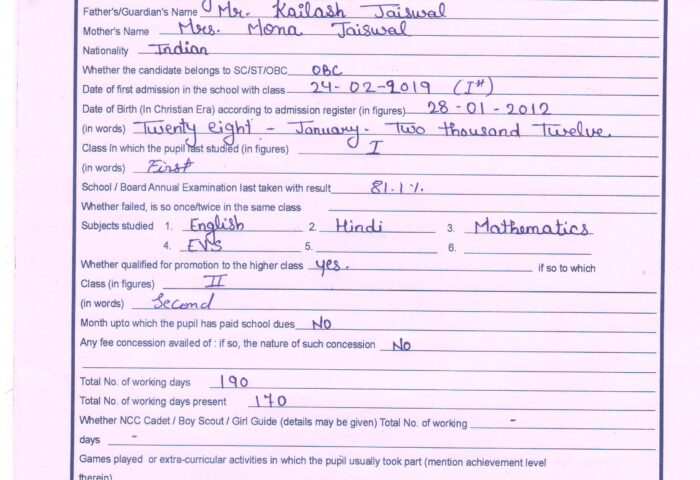 Father's/Guardian's Name Mr. Kailash Jaiswal
Mother's Name Mrs. Mona Jaiswal
Nationality Indian
Whether the candidate belongs to SC/ST/OBC OBC
Date of first admission in the school with class 24-02-2019 (Ist)
Date of Birth (In Christian Era) according to admission register (in figures) 28-01-2012
(in words) Twenty eight - January. Two thousand Twelve
Class in which the pupil last studied (in figures) I
(in words) First
School / Board Annual Examination last taken with result 81.1%
Whether failed, is so once/twice in the same class
Subjects studied 1. English 2. Hindi 3. Mathematics
4. EVS 5. 6.
Whether qualified for promotion to the higher class yes. if so to which
Class (in figures) II
(in words) Second
Month upto which the pupil has paid school dues No
Any fee concession availed of : if so, the nature of such concession No
Total No. of working days 190
Total No. of working days present 170
Whether NCC Cadet / Boy Scout / Girl Guide (details may be given) Total No. of working -
days -
Games played or extra-curricular activities in which the pupil usually took part (mention achievement level
therein)